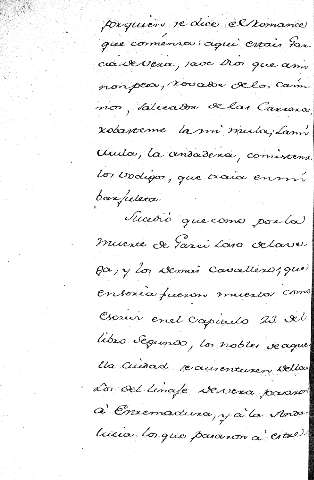 por quien se dice el Romance
que comienza: aqui estais Gar
cia de vera, sabe Dios que a mi
non pesa, rovador de los cami
nos, salteador de las Carreras
robasteme la mi mula, la mi
mula, la andadera, comisteme
los bodigos, que traia en mi
barjuleta.
Sucedió que como por la
muerte de Garci Laso de la ve
ga, y los demas Cavalleros, que
en soria fueron muertos como
escrivi en el Capitulo 23 del
libro segundo, los nobles de aque
lla Ciudad se ausentasen della
Los del linaje de vera pasaron
á Extremadura, y á la Anda
lucia. los que pasaron á estre